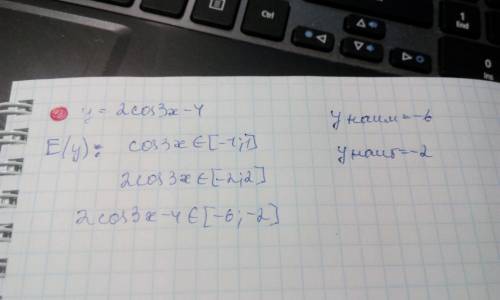 Ctrl
End
Ins
y = 2cos3x-4
E(y): cos3x∈[-1;1]
2cos3x∈[-2;2]
2cos3x-4∈[-6;-2]
y наим=-6
y наиб=-2